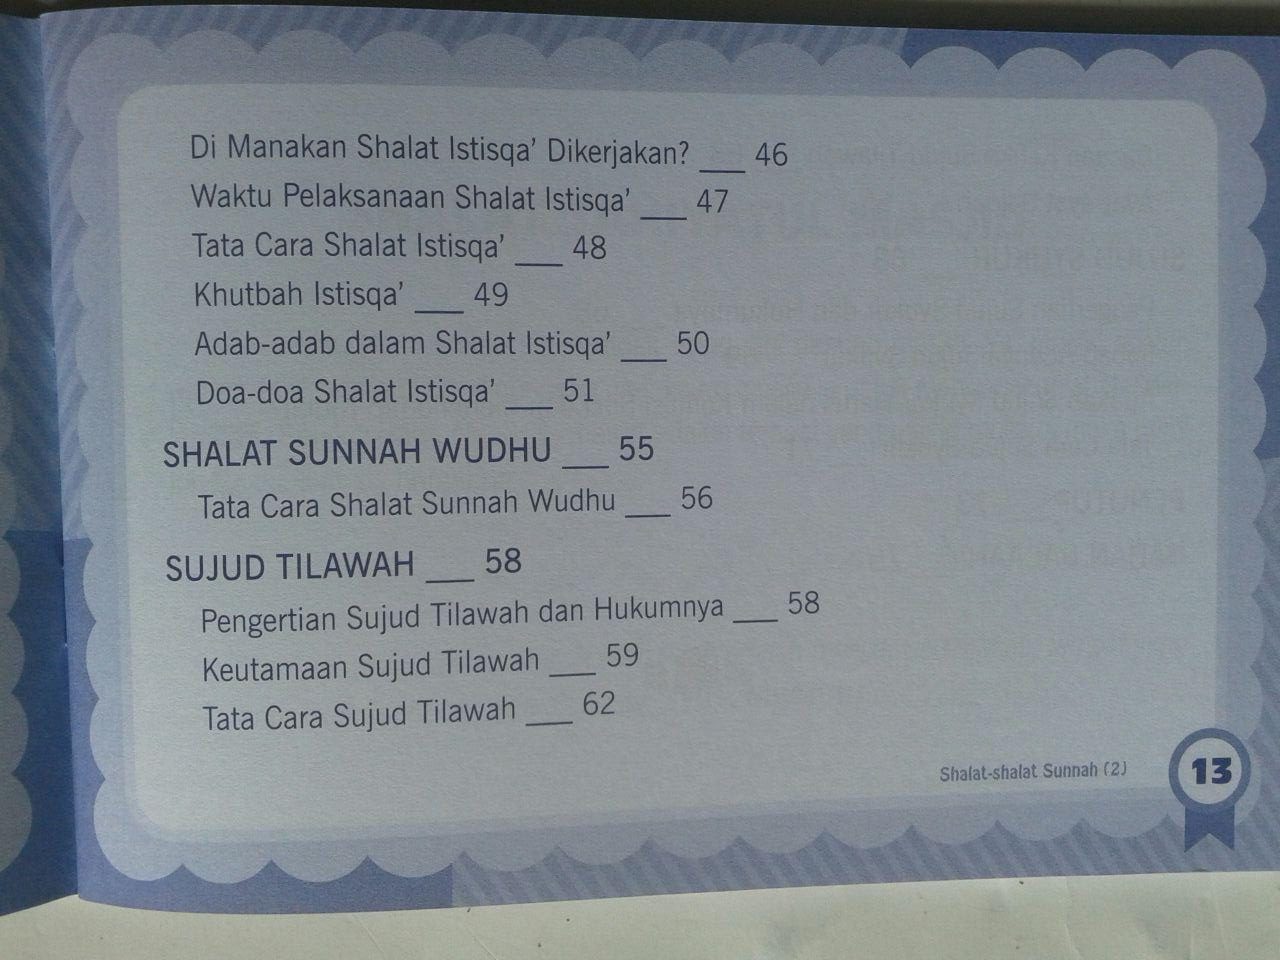 Di Manakan Shalat Istisqa' Dikerjakan? ___ 46
Waktu Pelaksanaan Shalat Istisqa' ___ 47
Tata Cara Shalat Istisqa' ___ 48
Khutbah Istisqa' ___ 49
Adab-adab dalam Shalat Istisqa' ___ 50
Doa-doa Shalat Istisqa' ___ 51
SHALAT SUNNAH WUDHU ___ 55
Tata Cara Shalat Sunnah Wudhu ___ 56
SUJUD TILAWAH ___ 58
Pengertian Sujud Tilawah dan Hukumnya ___ 58
Keutamaan Sujud Tilawah ___ 59
Tata Cara Sujud Tilawah ___ 62
Shalat-shalat Sunnah (2)
13